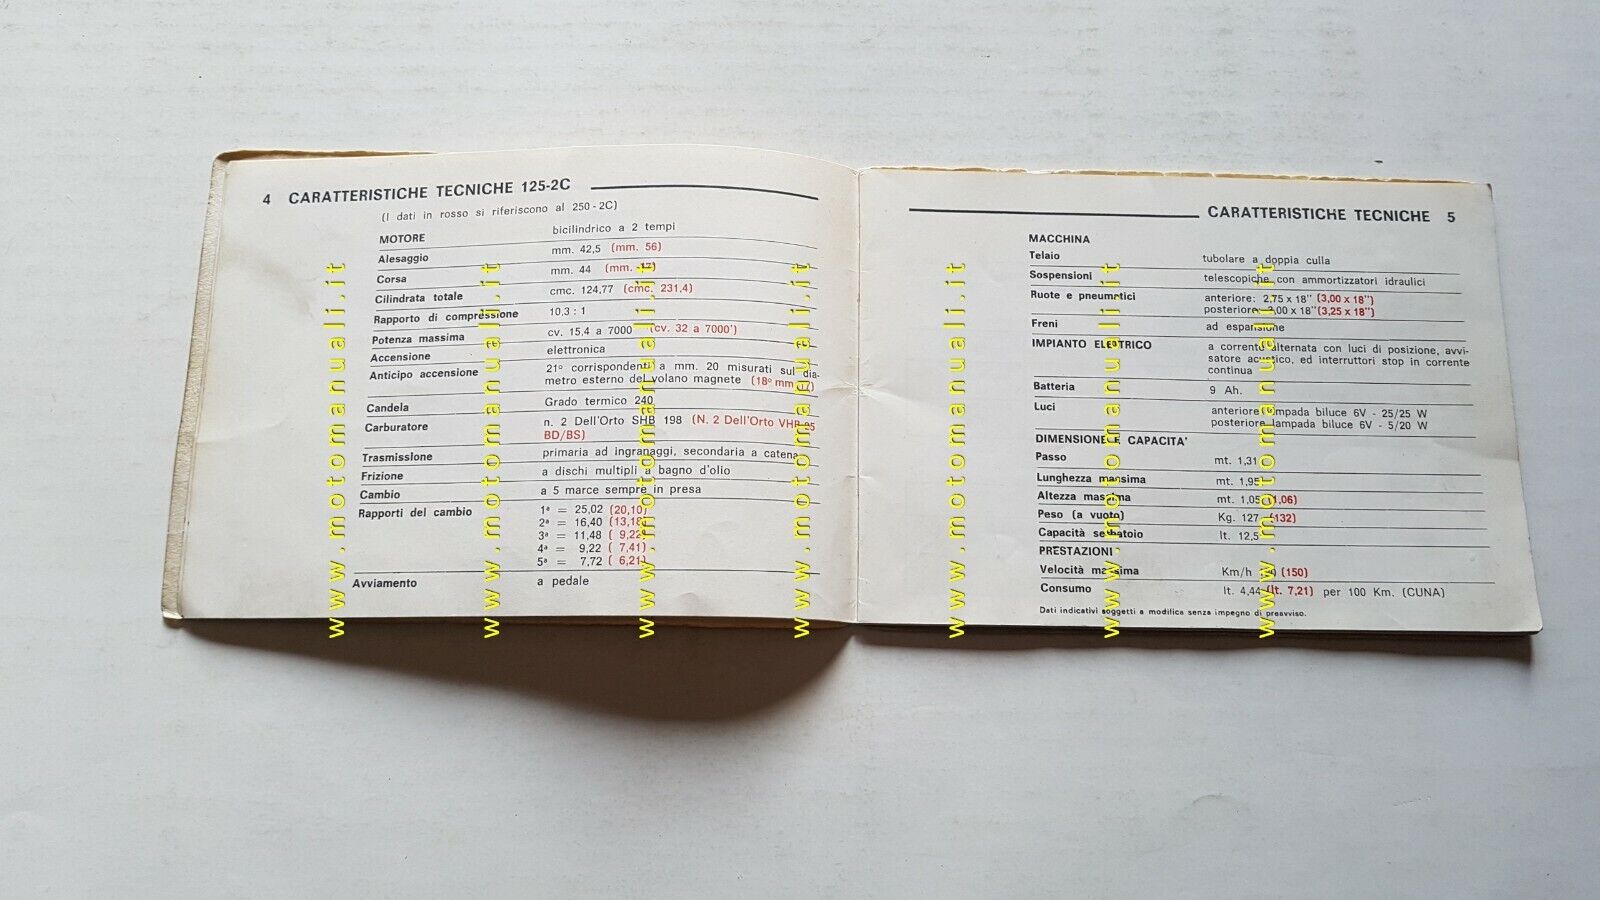 4 CARATTERISTICHE TECNICHE 125-2C
(I dati in rosso si riferiscono al 250 - 2C)
MOTORE bicilindrico a 2 tempi
Alesaggio mm. 42,5 (mm. 56)
Corsa mm. 44 (mm.
Cilindrata totale cmc. 124,77 (cmc. 231,4)
Rapporto di compressione 10,3 : 1
Potenza massima cv. 15,4 a 7000 (cv. 32 a 7000')
Accensione elettronica
Anticipo accensione 21° corrispondenti a mm. 20 misurati sul dia-
metro esterno del volano magnete (18° mm 17)
Candela Grado termico 240
Carburatore n. 2 Dell'Orto SHB 198 (N. 2 Dell'Orto VHB 25
BD/BS)
Trasmissione primaria ad ingranaggi, secondaria a catena
Frizione a dischi multipli a bagno d'olio
Cambio a 5 marce sempre in presa
Rapporti del cambio 1ª = 25,02 (20,10)
2ª = 16,40 (13,18)
3ª = 11,48 ( 9,22)
4ª = 9,22 ( 7,41)
5ª = 7,72 ( 6,21)
Avviamento a pedale
CARATTERISTICHE TECNICHE 5
MACCHINA
Telaio tubolare a doppia culla
Sospensioni telescopiche con ammortizzatori idraulici
Ruote e pneumatici anteriore: 2,75 x 18" (3,00 x 18")
posteriore: 3,00 x 18" (3,25 x 18")
Freni ad espansione
IMPIANTO ELETTRICO a corrente alternata con luci di posizione, avvi-
satore acustico, ed interruttori stop in corrente
continua
Batteria 9 Ah.
Luci anteriore lampada biluce 6V - 25/25 W
posteriore lampada biluce 6V - 5/20 W
DIMENSIONE E CAPACITA'
Passo mt. 1,31
Lunghezza massima mt. 1,95
Altezza massima mt. 1,05 (1,06)
Peso (a vuoto) Kg. 127 (132)
Capacità serbatoio lt. 12,5
PRESTAZIONI
Velocità massima Km/h (150)
Consumo lt. 4,44 (lt. 7,21) per 100 Km. (CUNA)
Dati indicativi soggetti a modifica senza impegno di preavviso.
www.motomanuali.it
www.motomanuali.it
www.motomanuali.it
www.motomanuali.it
www.motomanuali.it
www.motomanuali.it
www.motomanuali.it